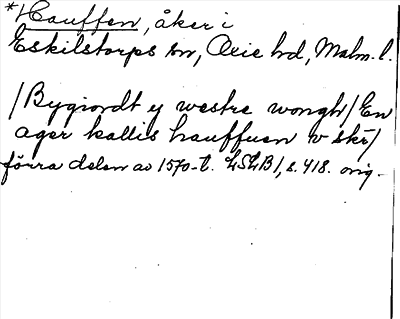 *Hauffen, åker i
Eskilstorps sn, Oxie hd, Malm. l.
/Bygiordt y westre wongh/En
ager kallis hauffuen v skiö/
förra delen av 1570-t. LSLB 1, s. 418. orig.